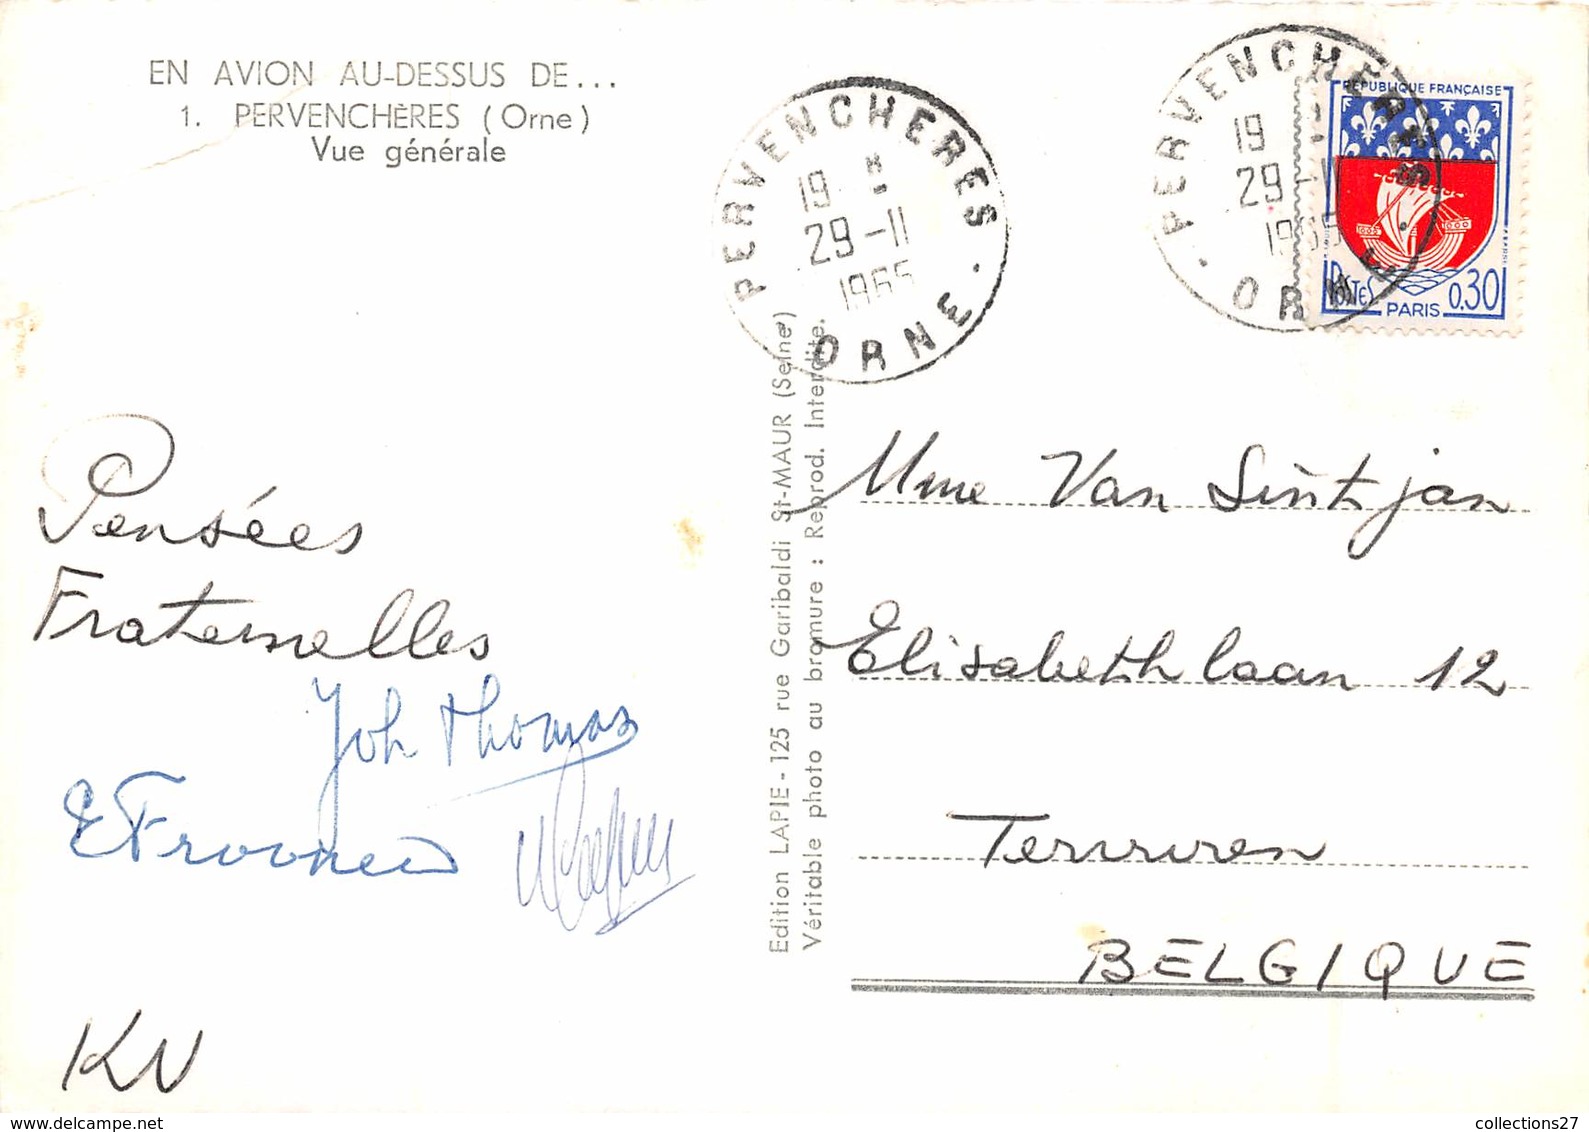 EN AVION AU-DESSUS DE...
1. PERVENCHÈRES (Orne)
Vue générale
PERVENCHERES
19 H
29-11
1965
ORNE
PERVENCHERES
19
29-11
1965
ORNE
RÉPUBLIQUE FRANÇAISE
POSTES
0,30
PARIS
Pensées
Fraternelles
Joh Thomas
KN
Edition LAPIE - 125 rue Garibaldi St-MAUR (Seine)
Véritable photo au bromure : Reprod. Interdite.
Mme Van Sintjan
Elisabethlaan 12
Tervuren
BELGIQUE
collections27